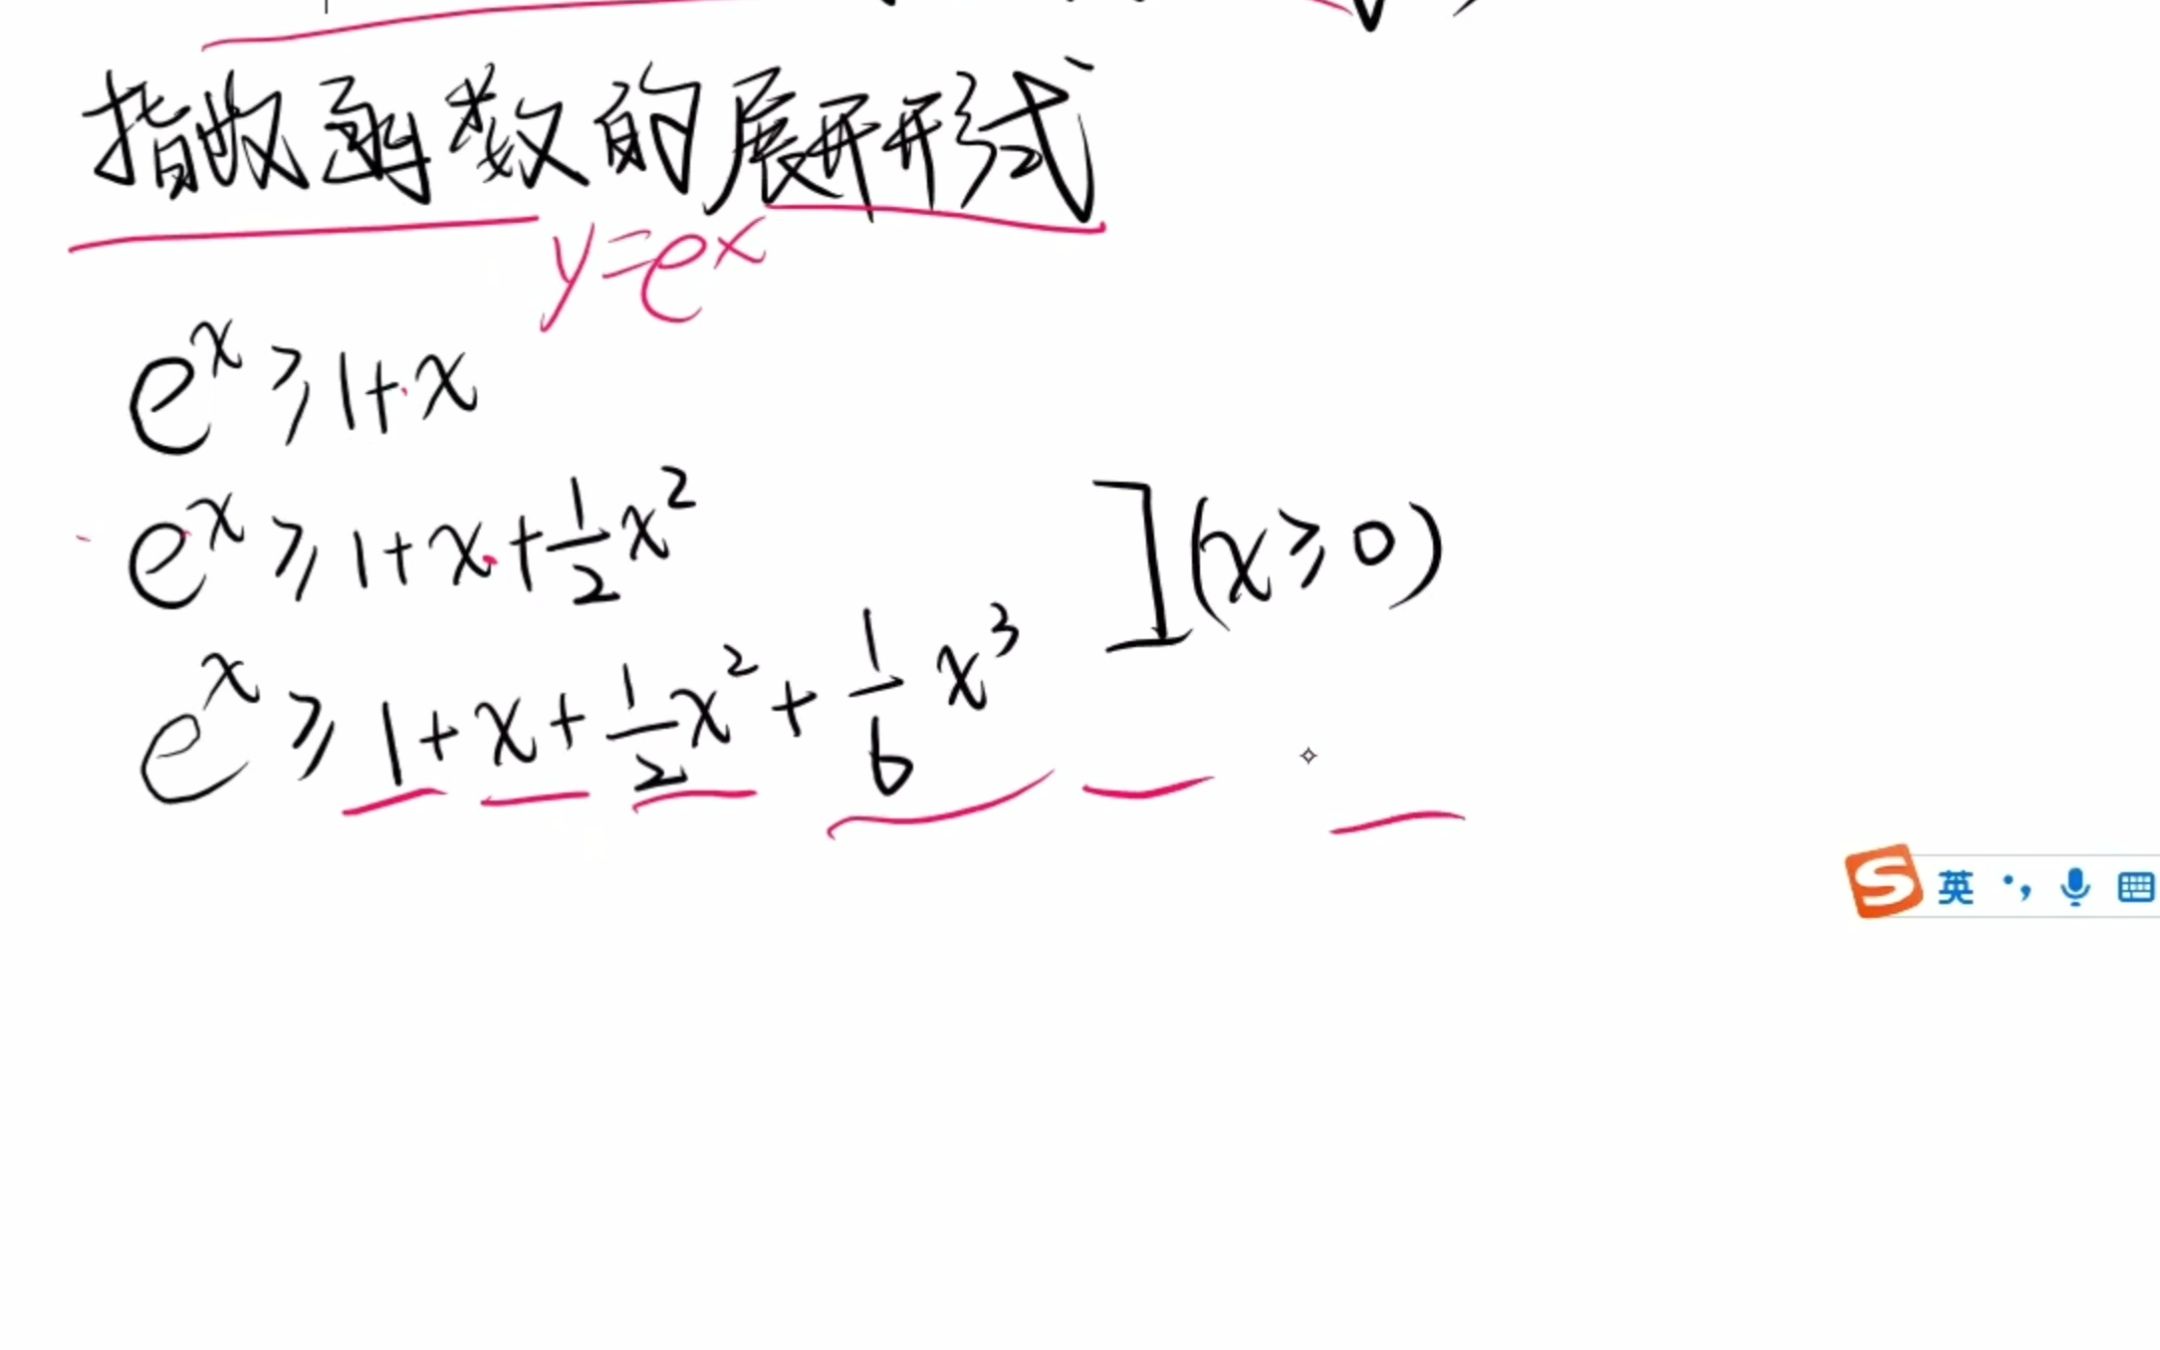 指数函数的展开形式
y=e^x
e^x ≥ 1+x
e^x ≥ 1+x+1/2 x^2
](x≥0)
e^x ≥ 1+x+1/2 x^2+1/6 x^3
S 英 ·,